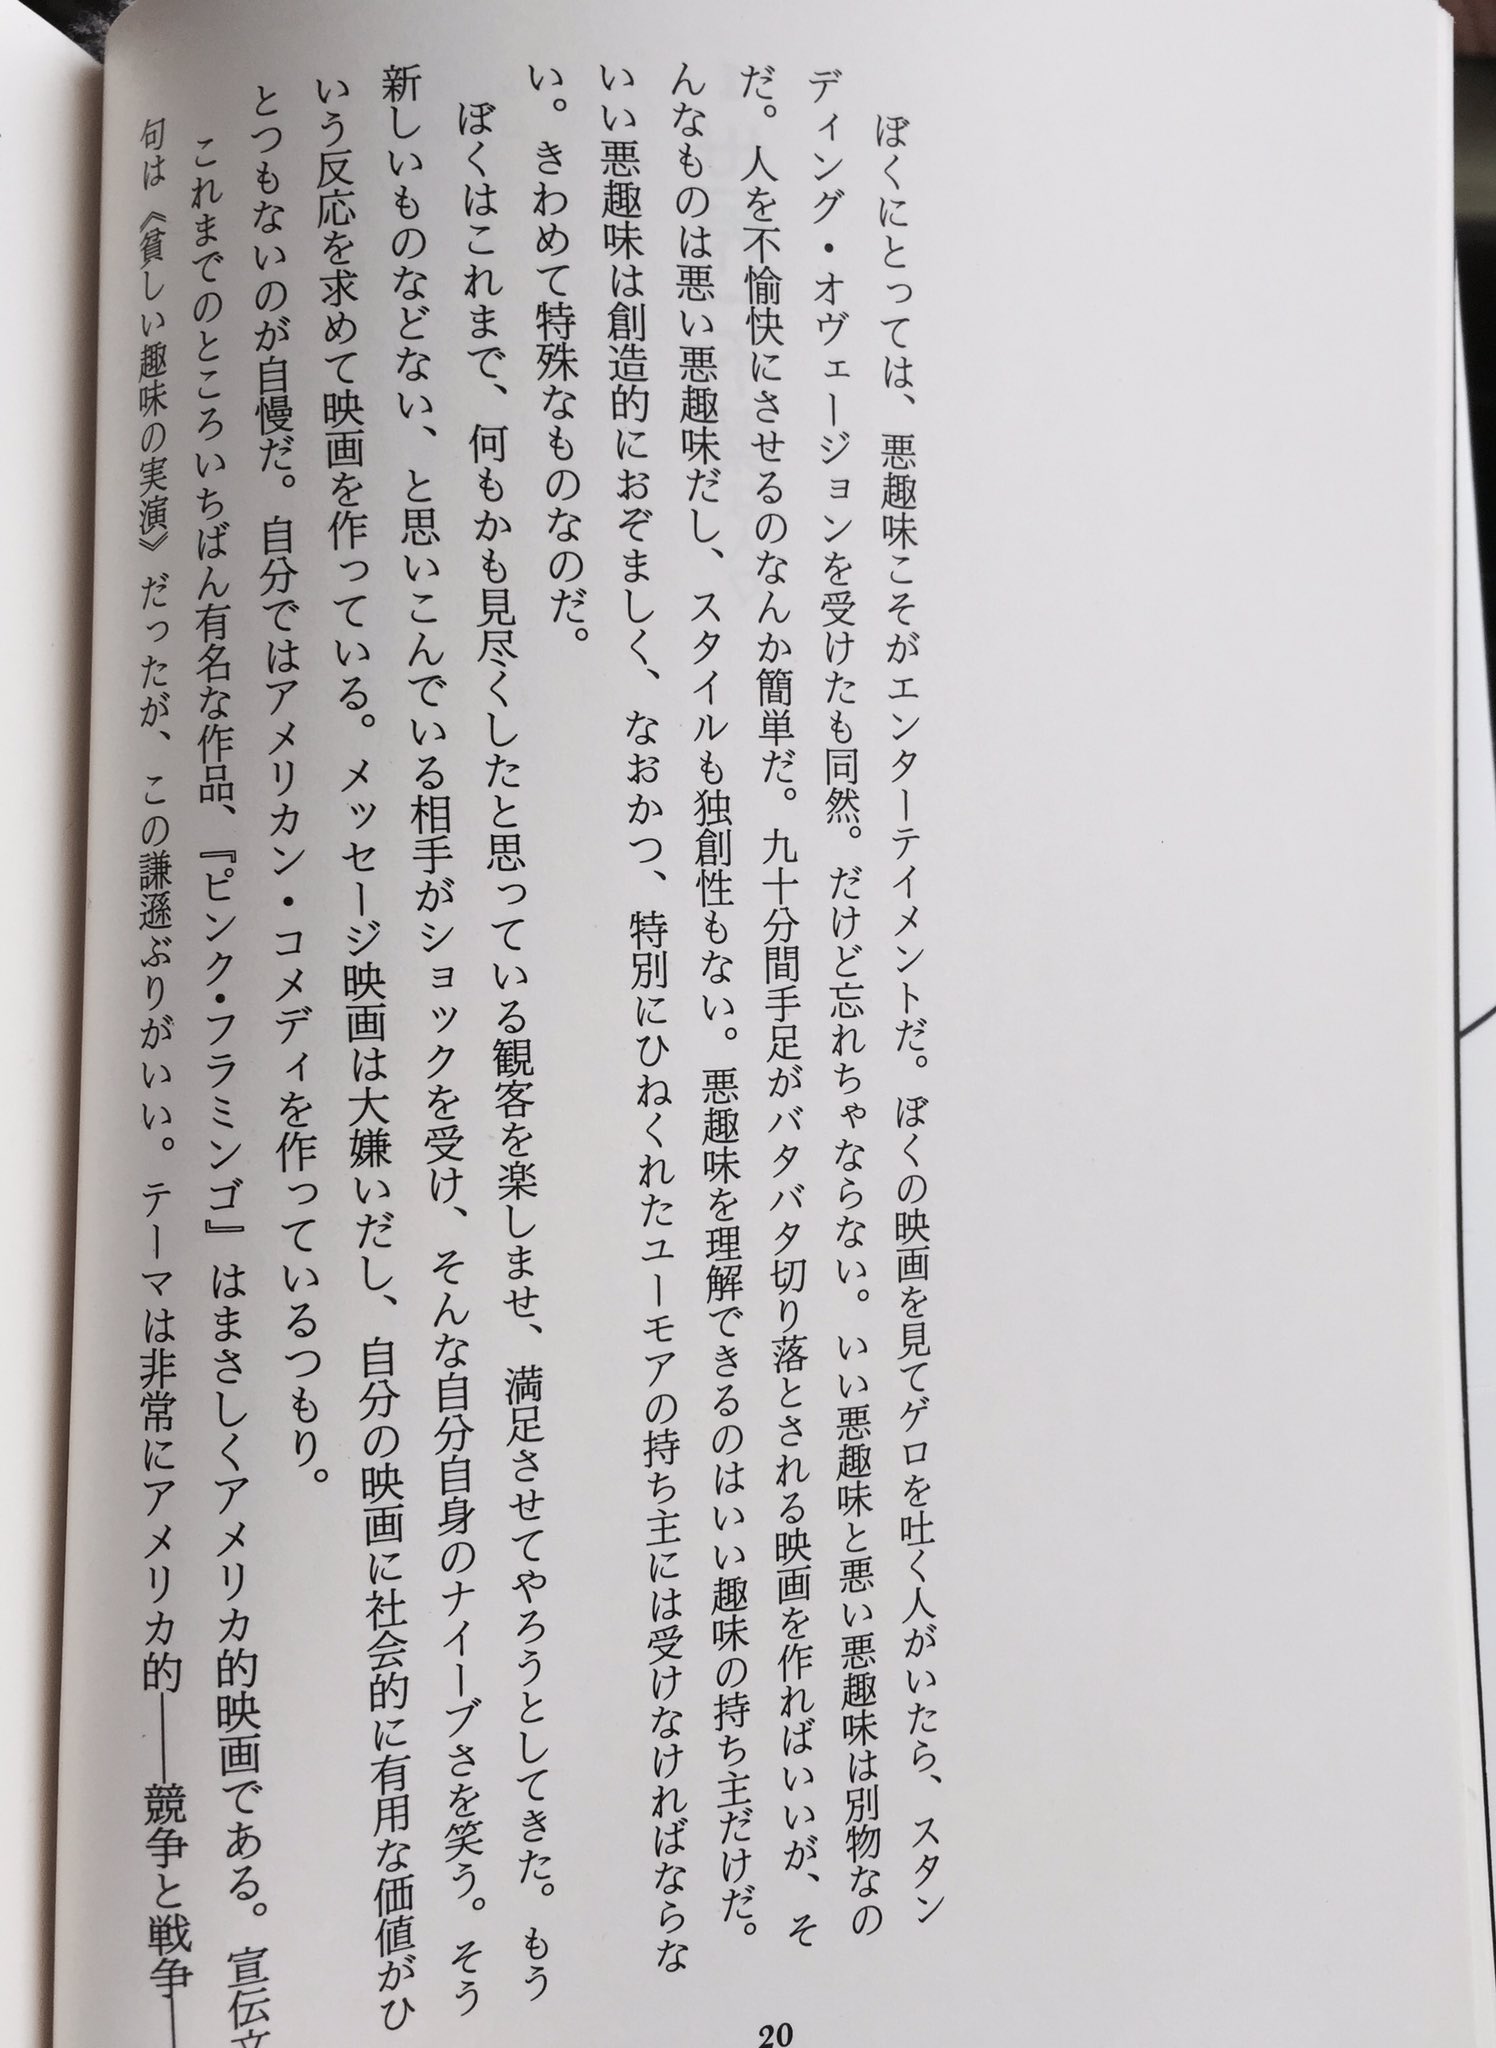 ぼくにとっては、悪趣味こそがエンターテイメントだ。ぼくの映画を見てゲロを吐く人がいたら、スタン
ディング・オヴェージョンを受けたも同然。だけど忘れちゃならない。いい悪趣味と悪い悪趣味は別物なの
だ。人を不愉快にさせるのなんか簡単だ。九十分間手足がバタバタ切り落とされる映画を作ればいいが、そ
んなものは悪い悪趣味だし、スタイルも独創性もない。悪趣味を理解できるのはいい趣味の持ち主だけだ。
いい悪趣味は創造的におぞましく、なおかつ、特別にひねくれたユーモアの持ち主には受けなければならな
い。きわめて特殊なものなのだ。
ぼくはこれまで、何もかも見尽くしたと思っている観客を楽しませ、満足させてやろうとしてきた。もう
新しいものなどない、と思いこんでいる相手がショックを受け、そんな自分自身のナイーブさを笑う。そう
いう反応を求めて映画を作っている。メッセージ映画は大嫌いだし、自分の映画に社会的に有用な価値がひ
とつもないのが自慢だ。自分ではアメリカン・コメディを作っているつもり。
これまでのところいちばん有名な作品、『ピンク・フラミンゴ』はまさしくアメリカ的映画である。宣伝文
句は《貧しい趣味の実演》だったが、この謙遜ぶりがいい。テーマは非常にアメリカ的――競争と戦争――
20